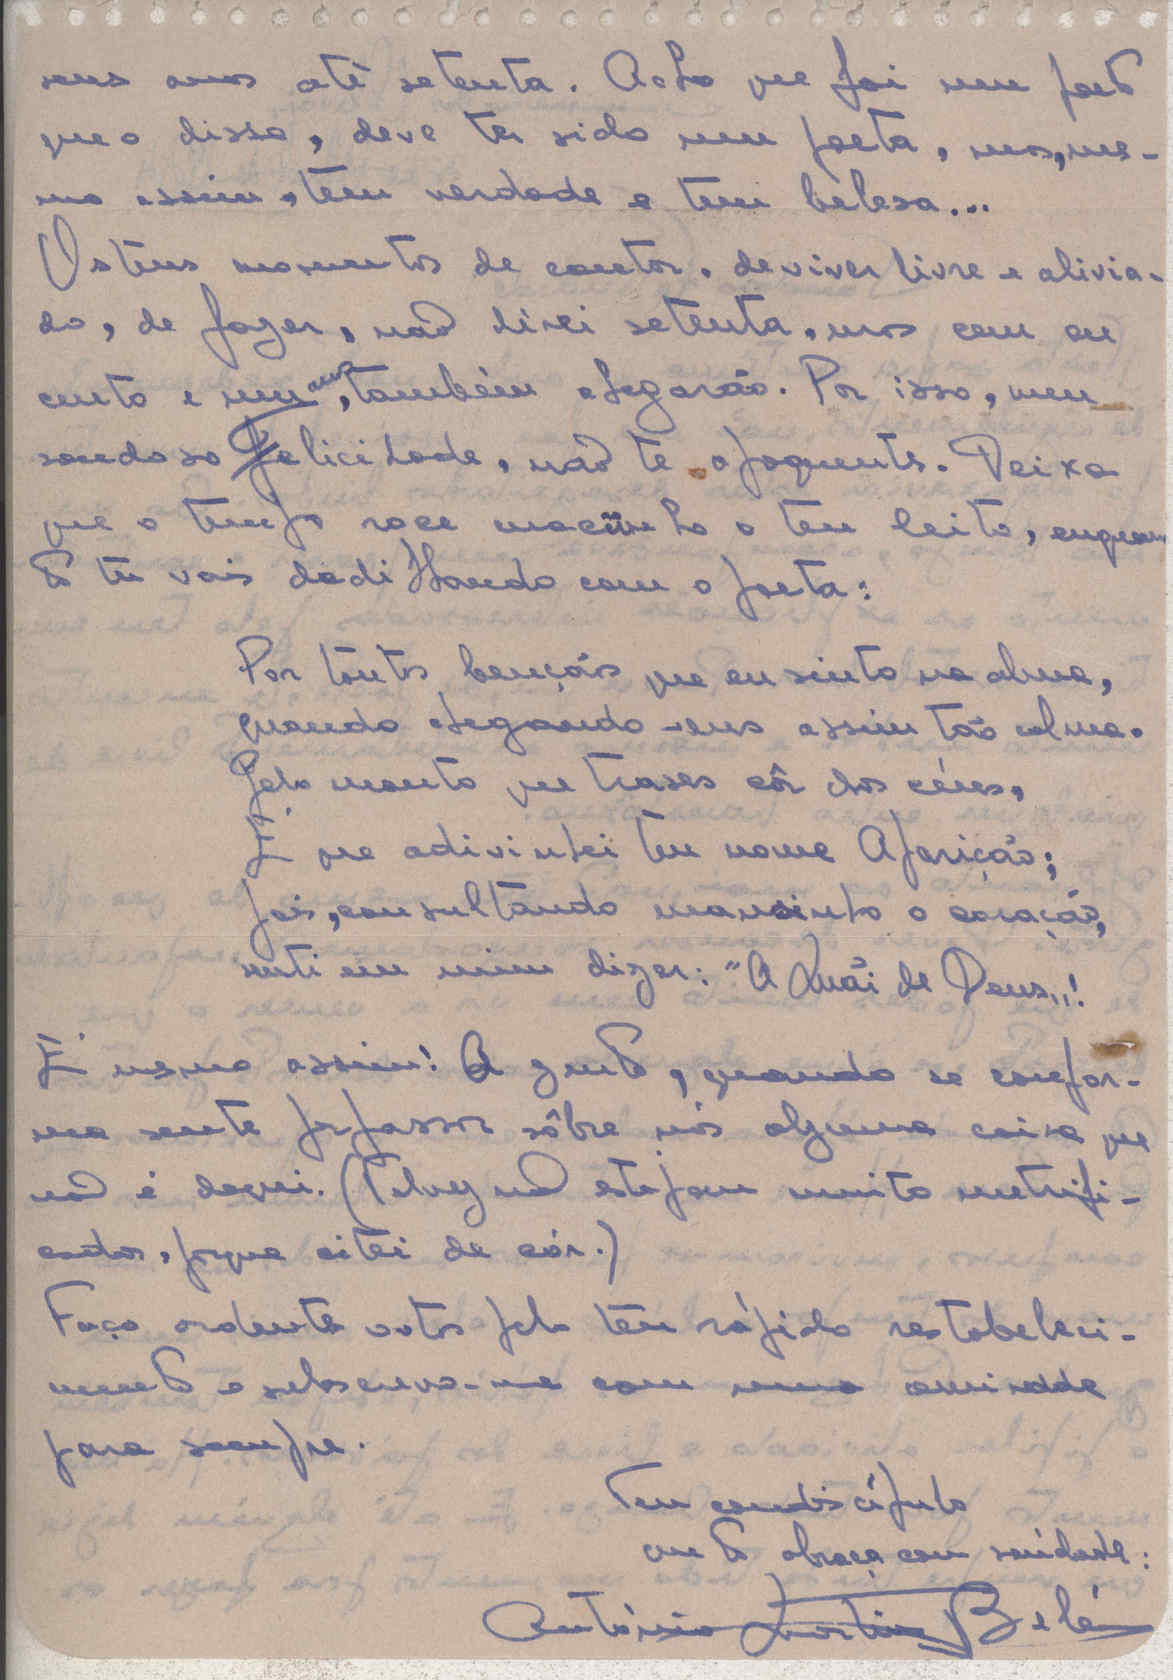 seus anos até setenta. Acho que foi um poeta
que o disse, deve ter sido um poeta, mas, mes-
mo assim, tem verdade e tem beleza...
Os teus momentos de cantar, de viver livre e alivia-
do, de fazer, não direi setenta, mas cem ou
cento e um anos, também chegarão. Por isso, meu
saudoso Felicidade, não te apoquentes. Deixa
que o tempo roce macinho o teu leito, enquan-
to tu vais dedilhando com o poeta:
Por tantas bençãos que eu sinto na alma,
quando chegando vens assim tão calma.
Pelo manto que trazes côr dos céus,
É que adivinhei teu nome Aparição;
pois, consultando mansinho o coração,
senti em mim dizer: "A Mãi de Deus"!
É mesmo assim! A gente, quando se confor-
ma sente perpassar sôbre nós alguma coisa que
não é daqui. (Talvez não estejam muito metrifi-
cados, porque citei de cór.)
Faço ardentes votos pelo teu rápido restabeleci-
mento e subscrevo-me com uma amizade
para sempre.
Teu condiscípulo
que te abraça com saudade:
António Martins Belé